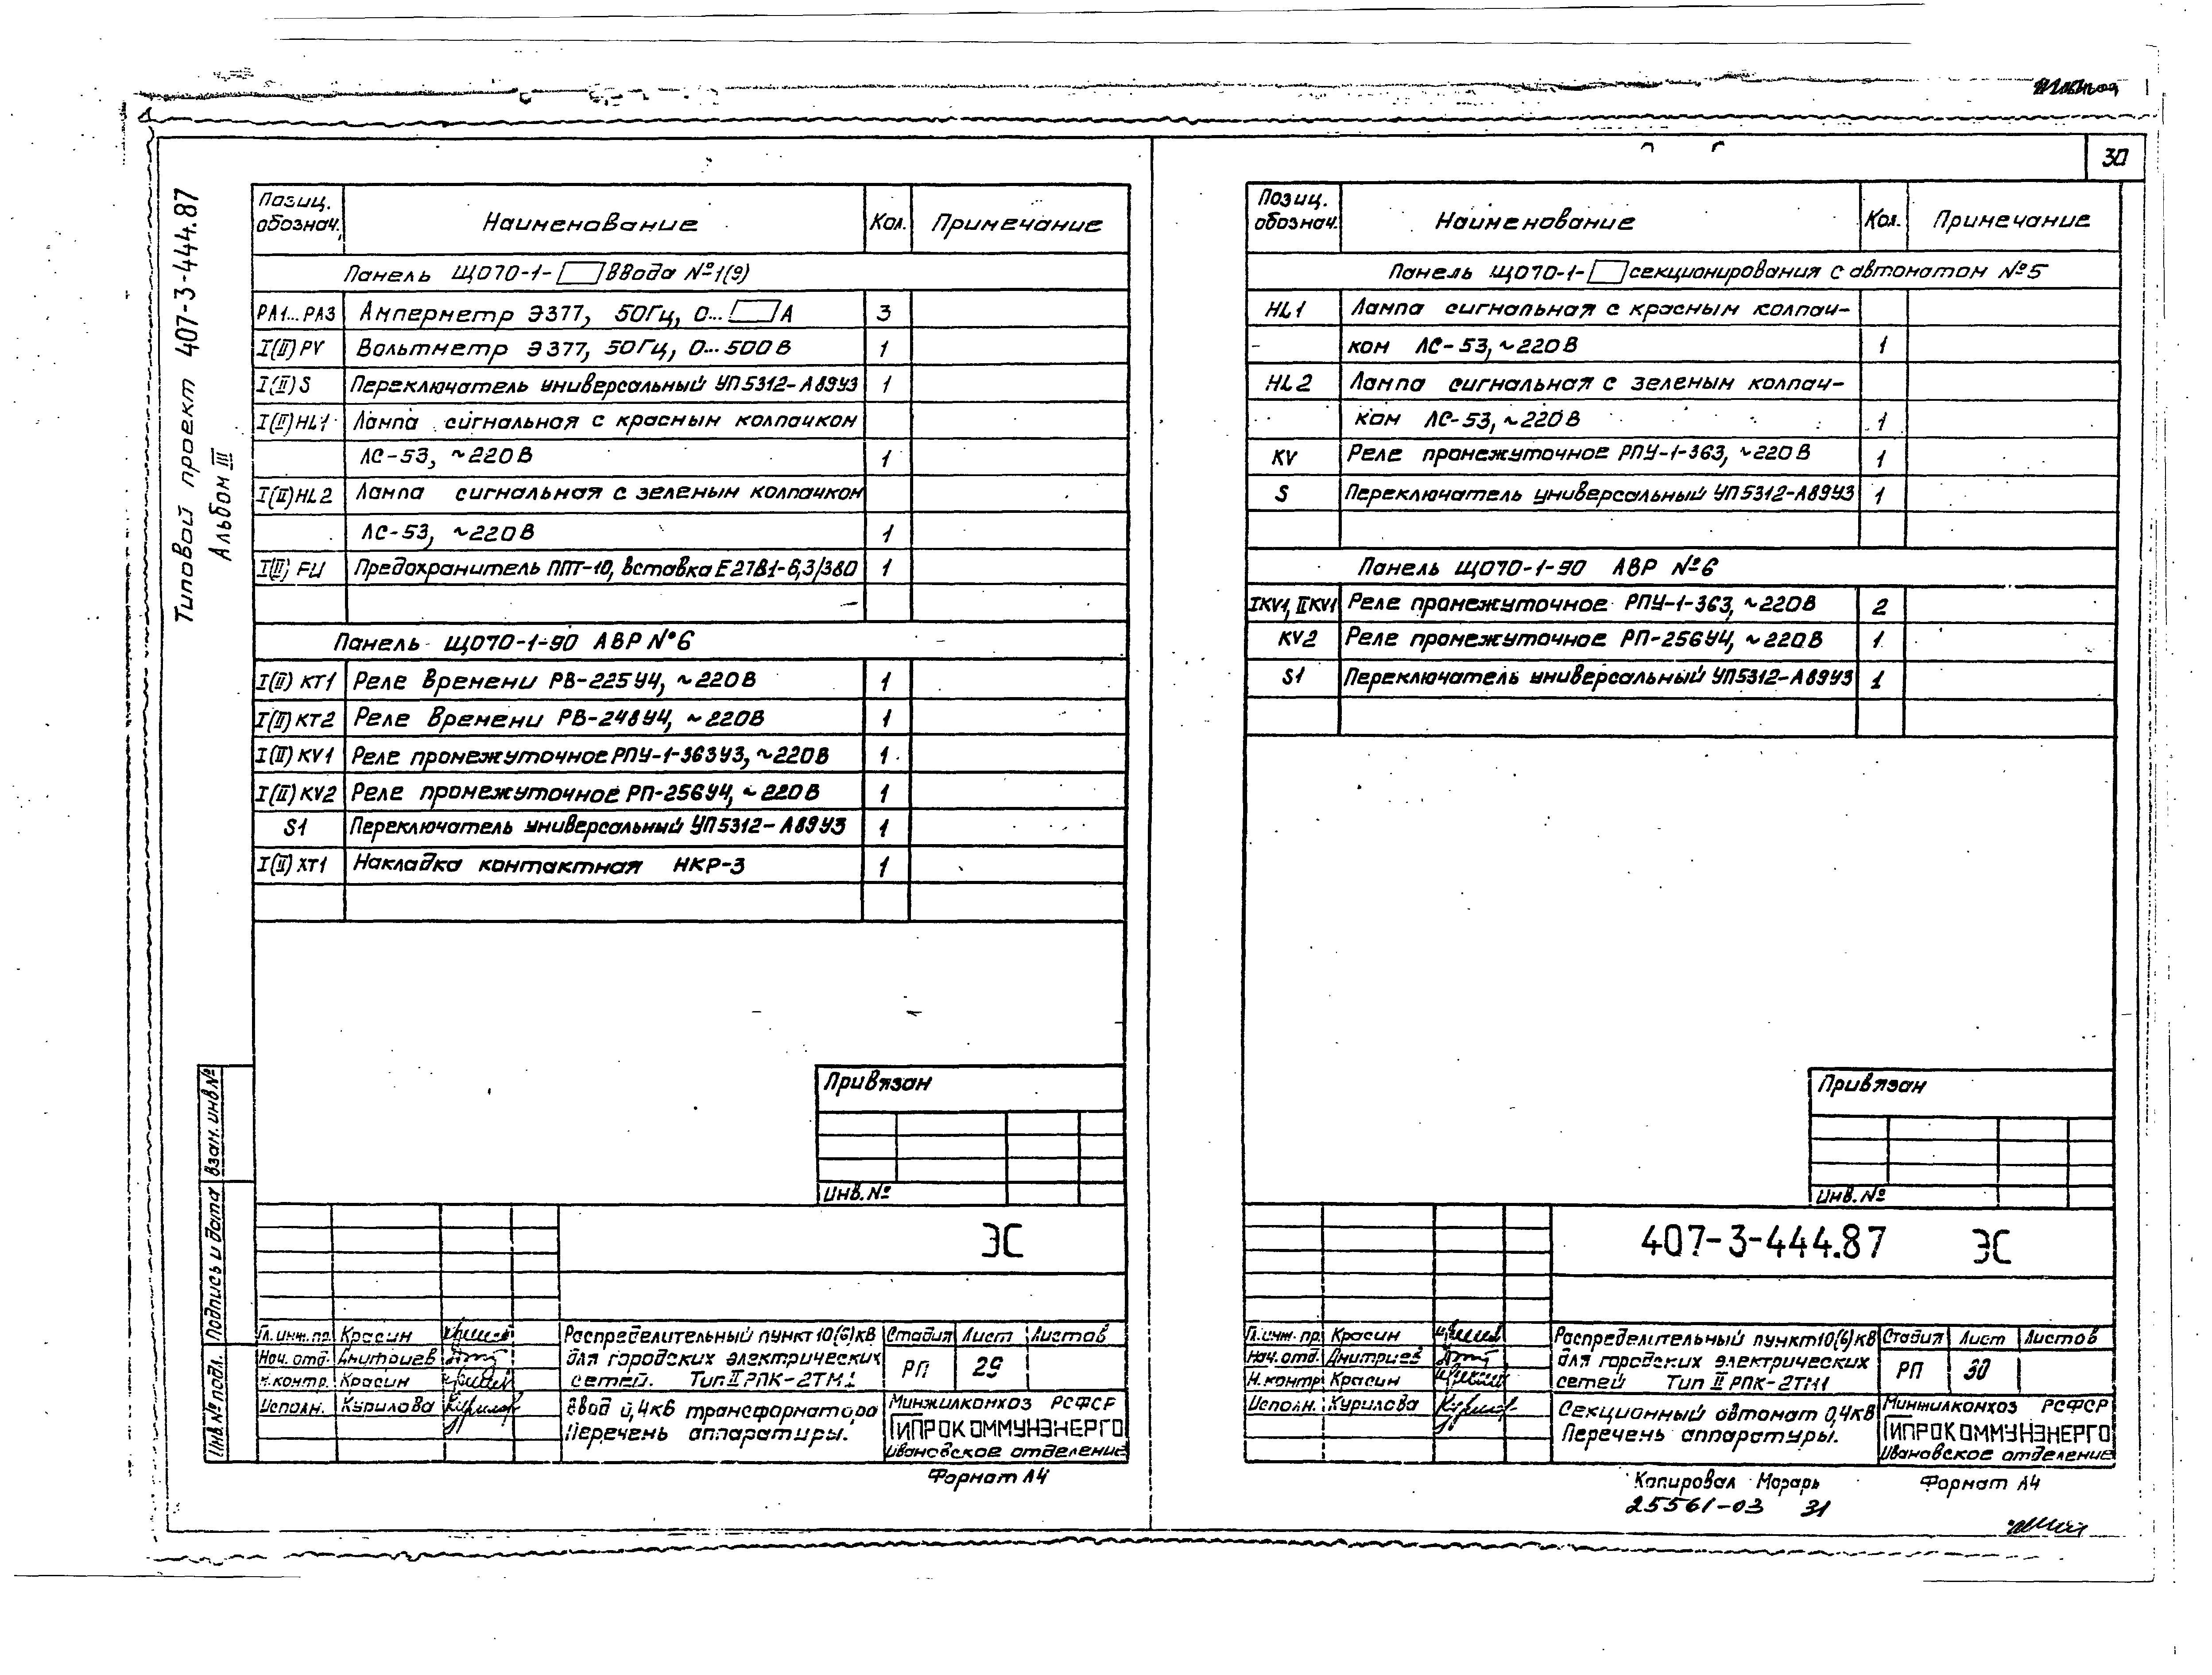 30
Типовой проект 407-3-444.87
Альбом III
Позиц. обознач.
Наименование
Кол.
Примечание
Панель ЩО70-1-▭ ввода №1(9)
PA1...PA3 Амперметр Э377, 50Гц, 0...▭А 3
I(II)PV Вольтметр Э377, 50Гц, 0...500В 1
I(II)S Переключатель универсальный УП5312-А89У3 1
I(II)HL1 Лампа сигнальная с красным колпачком
ЛС-53, ~220В 1
I(II)HL2 Лампа сигнальная с зеленым колпачком
ЛС-53, ~220В 1
I(II) FU Предохранитель ППТ-10, вставка Е27В1-6,3/380 1
Панель ЩО70-1-90 АВР №6
I(II) KT1 Реле времени РВ-225У4, ~220В 1
I(II) KT2 Реле времени РВ-248У4, ~220В 1
I(II) KV1 Реле промежуточное РПУ-1-363У3, ~220В 1
I(II) KV2 Реле промежуточное РП-256У4, ~220В 1
S1 Переключатель универсальный УП5312-А89У3 1
I(II) XT1 Накладка контактная НКР-3 1
Привязан
Инв. №
Взам. инв №
Подпись и дата
Инв № подл.
ЭС
Гл. инж. пр. Красин
Нач. отд. Дмитриев
Н. контр. Красин
Исполн. Курилова
Распределительный пункт 10(6)кВ
для городских электрических
сетей. Тип II РПК-2ТМ1
Стадия Лист Листов
РП 29
Ввод 0,4кВ трансформатора
Перечень аппаратуры.
Минжилкомхоз РСФСР
ГИПРОКОММУНЭНЕРГО
Ивановское отделение
Формат А4
Позиц. обознач.
Наименование
Кол.
Примечание
Панель ЩО70-1-▭ секционирования с автоматом №5
HL1 Лампа сигнальная с красным колпач-
ком ЛС-53, ~220В 1
HL2 Лампа сигнальная с зеленым колпач-
ком ЛС-53, ~220В 1
KV Реле промежуточное РПУ-1-363, ~220В 1
S Переключатель универсальный УП5312-А89У3 1
Панель ЩО70-1-90 АВР №6
IKV1, IIKV1 Реле промежуточное РПУ-1-363, ~220В 2
KV2 Реле промежуточное РП-256У4, ~220В 1
S1 Переключатель универсальный УП5312-А89У3 1
Привязан
Инв. №
407-3-444.87 ЭС
Гл. инж. пр. Красин
Нач. отд. Дмитриев
Н. контр Красин
Исполн. Курилова
Распределительный пункт 10(6)кВ
для городских электрических
сетей Тип II РПК-2ТМ1
Стадия Лист Листов
РП 30
Секционный автомат 0,4кВ
Перечень аппаратуры.
Минжилкомхоз РСФСР
ГИПРОКОММУНЭНЕРГО
Ивановское отделение
Копировал Морарь
Формат А4
25561-03 31